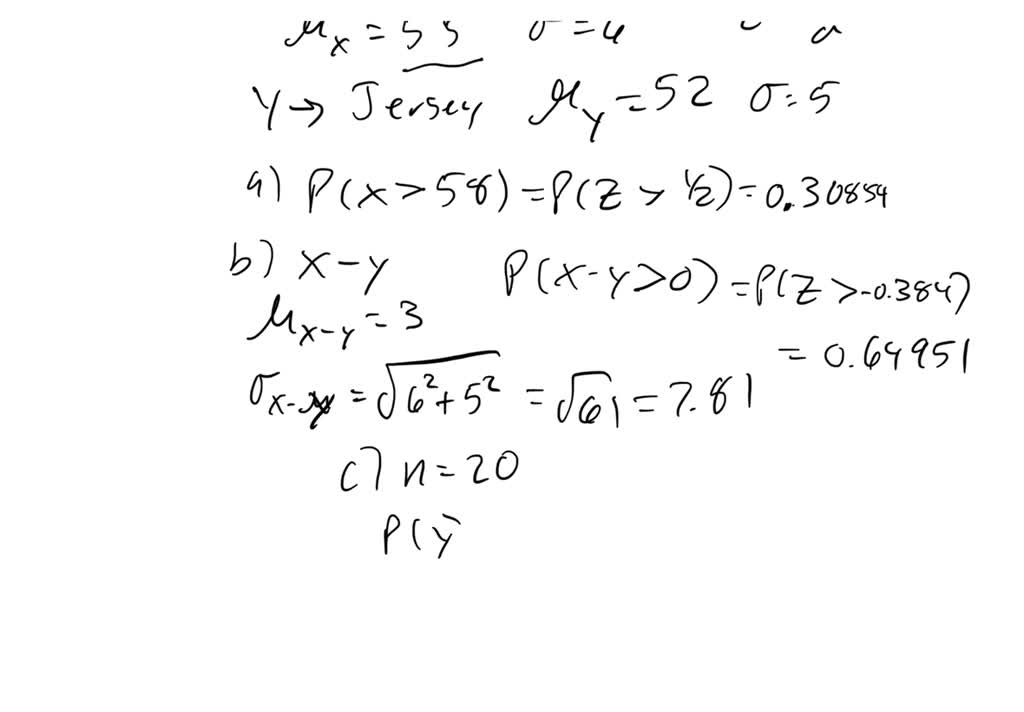 μx = 55 σ = 6
Y → Jersey μY = 52 σ = 5
a) P(X > 58) = P(Z > 1/2) = 0.30854
b) X - Y P(X - Y > 0) = P(Z > -0.384)
μX-Y = 3
= 0.64951
σX-Y = √6² + 5² = √61 = 7.81
c) n = 20
P(ȳ